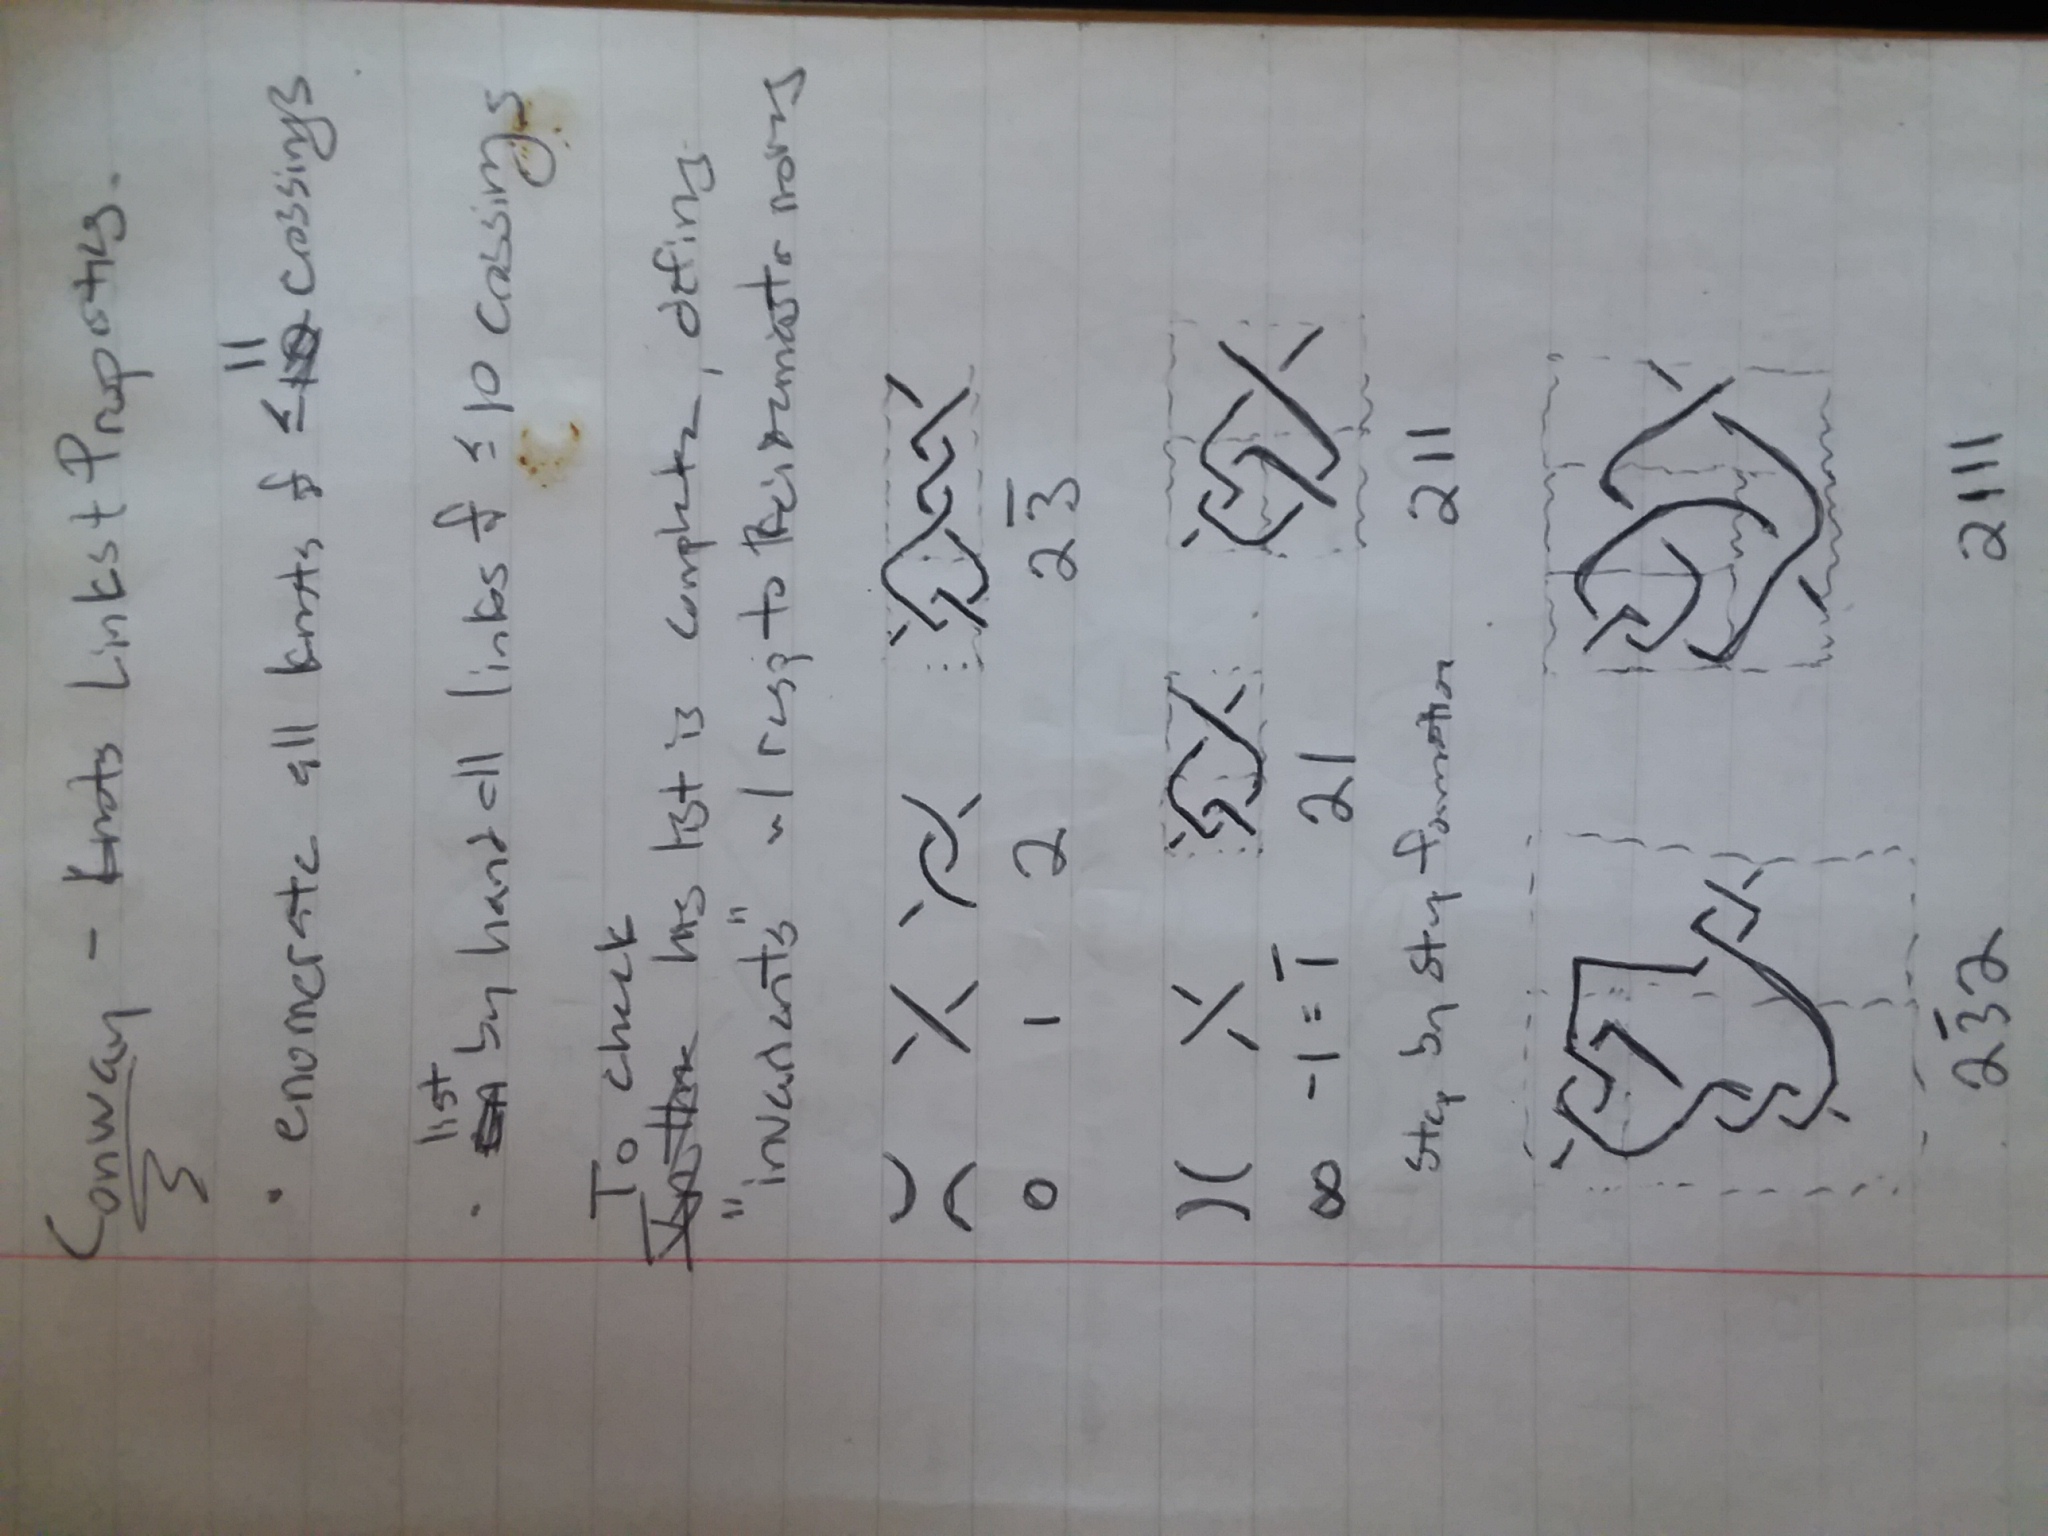 Conway - Knots Links + Properties.
• enumerate all knots of ≤ 10 11 crossings
• list by hand all links of ≤ 10 crossings
To check
his list is complete, defines
"invariants" w/ resp to Reidemeister moves
0 1 2 2 3̅
∞ -1 = 1̅ 21
step by step formation 211
2 3̅ 2 2111